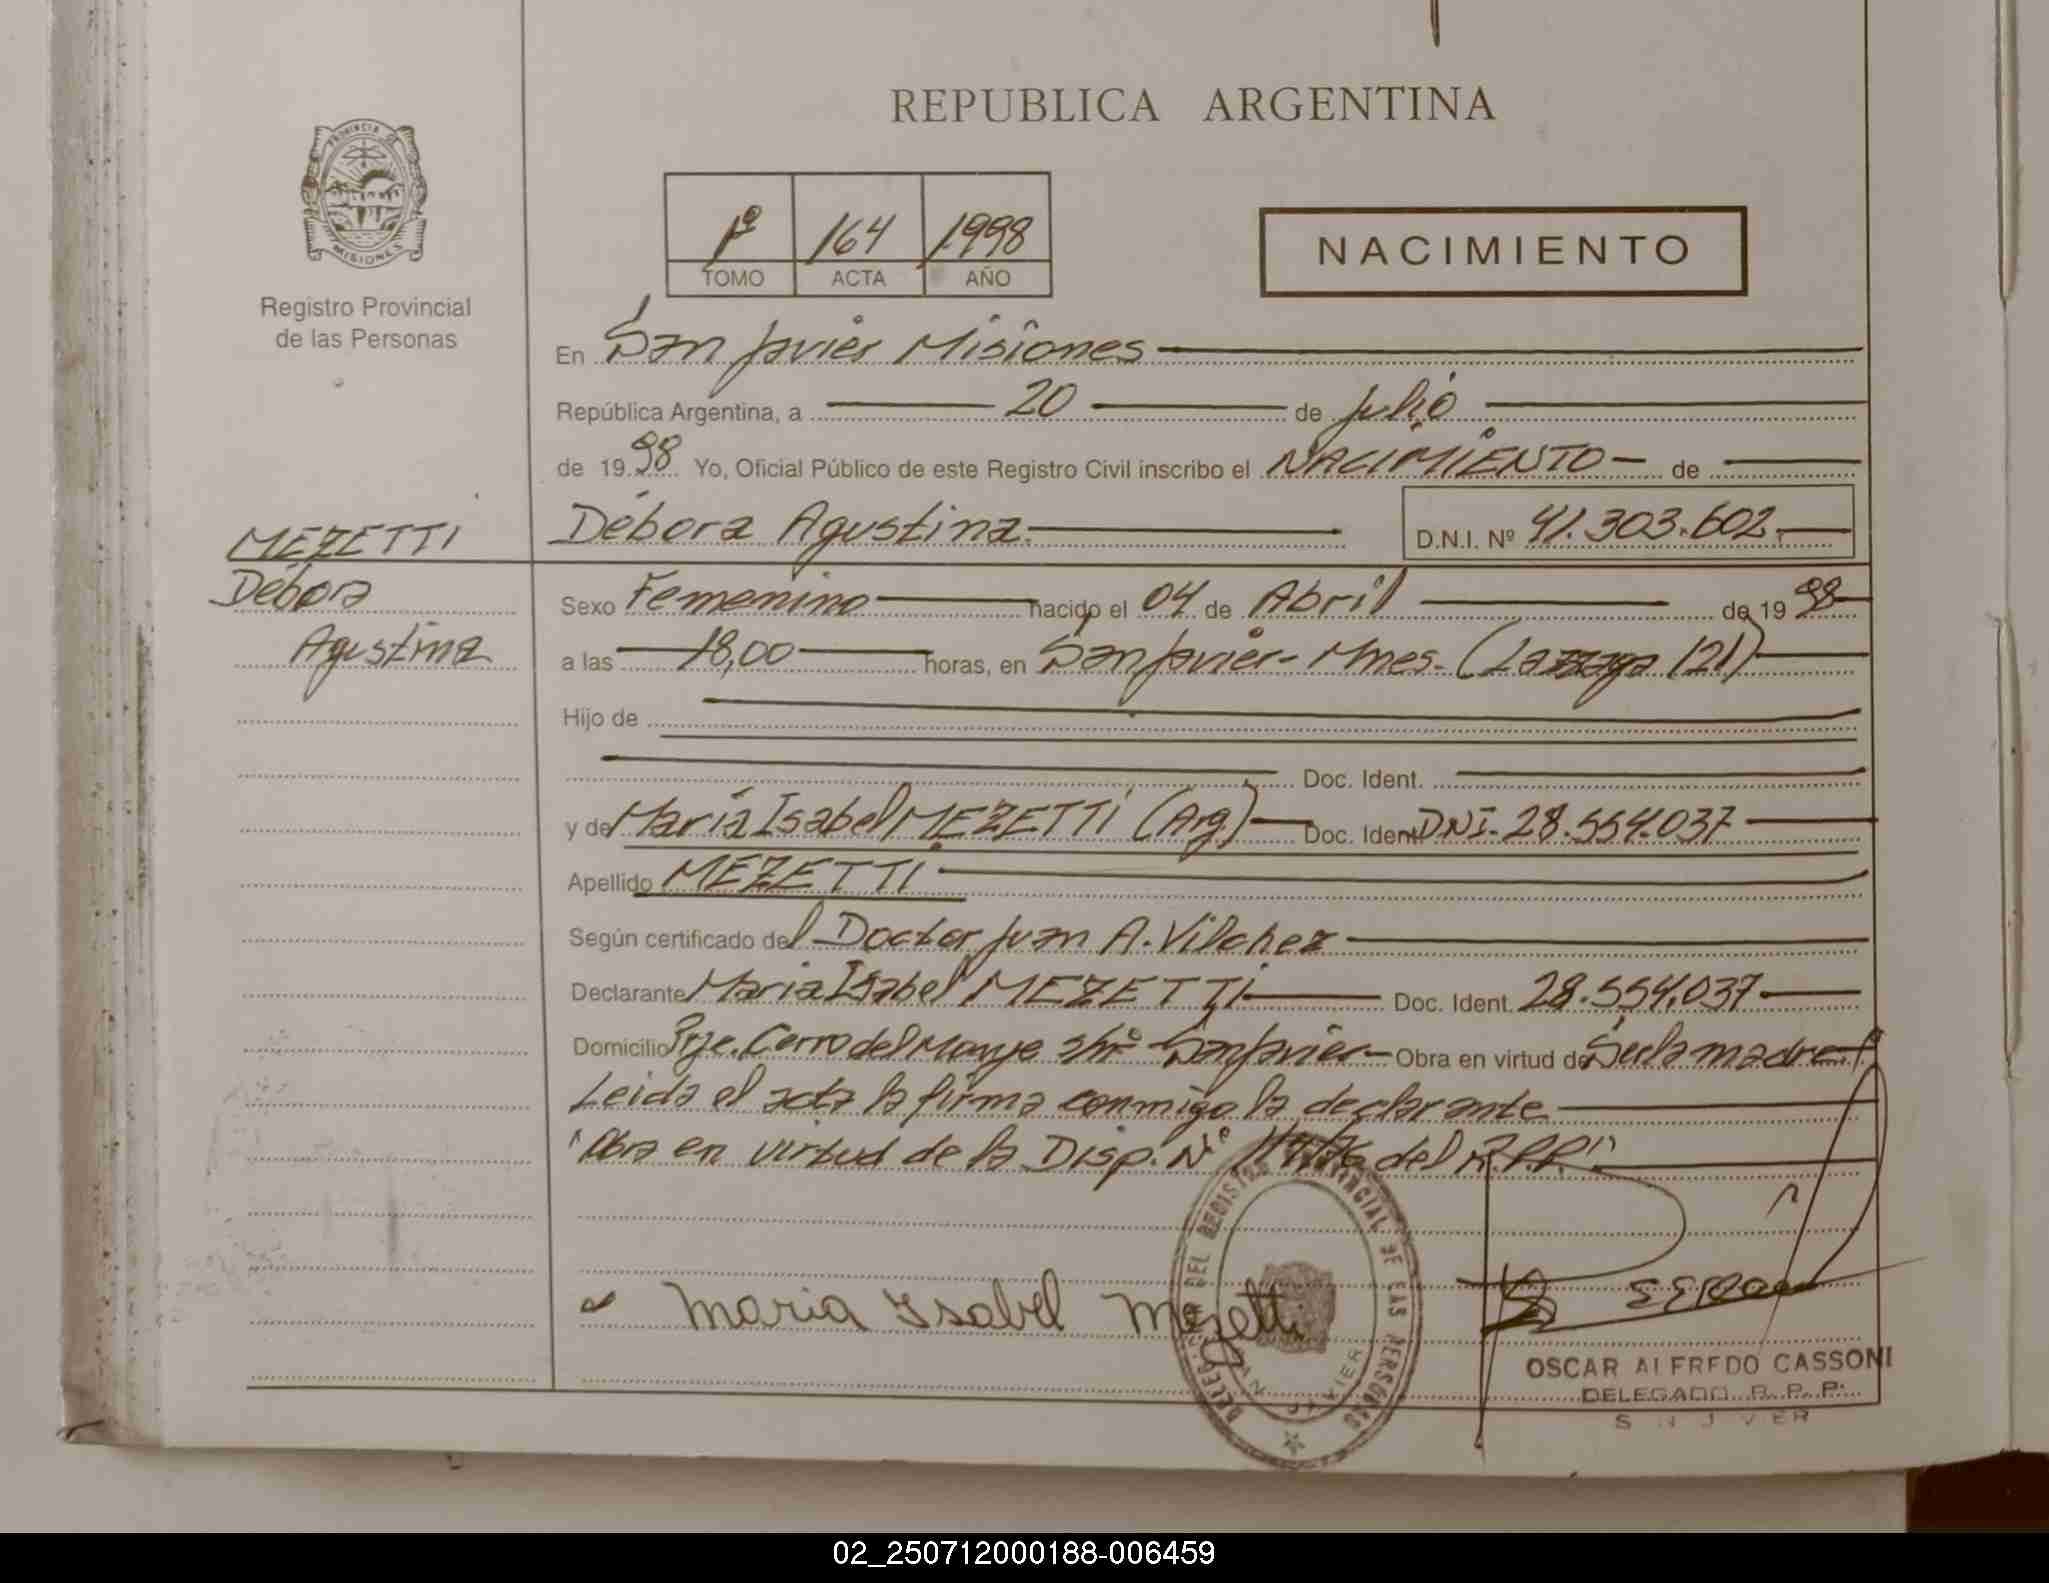 REPUBLICA ARGENTINA
PROVINCIA DE
MISIONES
Registro Provincial
de las Personas
1º 164 1998
TOMO ACTA AÑO
NACIMIENTO
En San Javier Misiones
República Argentina, a 20 de julio
de 1998 Yo, Oficial Público de este Registro Civil inscribo el NACIMIENTO de
MEZETTI
Débora Agustina. D.N.I. Nº 41.303.602.
Débora
Agustina
Sexo Femenino nacido el 04 de Abril de 1998
a las 18,00 horas, en San Javier - Mnes. ( 121)
Hijo de
Doc. Ident.
y de María Isabel MEZETTI (Arg.) Doc. Ident. DNI. 28.554.037
Apellido MEZETTI
Según certificado del Doctor Juan A. Vilchez
Declarante María Isabel MEZETTI Doc. Ident. 28.554.037
Domicilio Pje. Cerro del Monje s/nº San Javier Obra en virtud de Ser la madre
Leida el acta la firma conmigo la declarante
"Obra en virtud de la Disp. Nº del R.P.P."
Maria Isabel Mezetti
DELEG DEL REGISTRO PROVINCIAL DE LAS PERSONAS
SAN JAVIER
OSCAR ALFREDO CASSONI
DELEGADO R. P. P.
S N J V ER
02_250712000188-006459